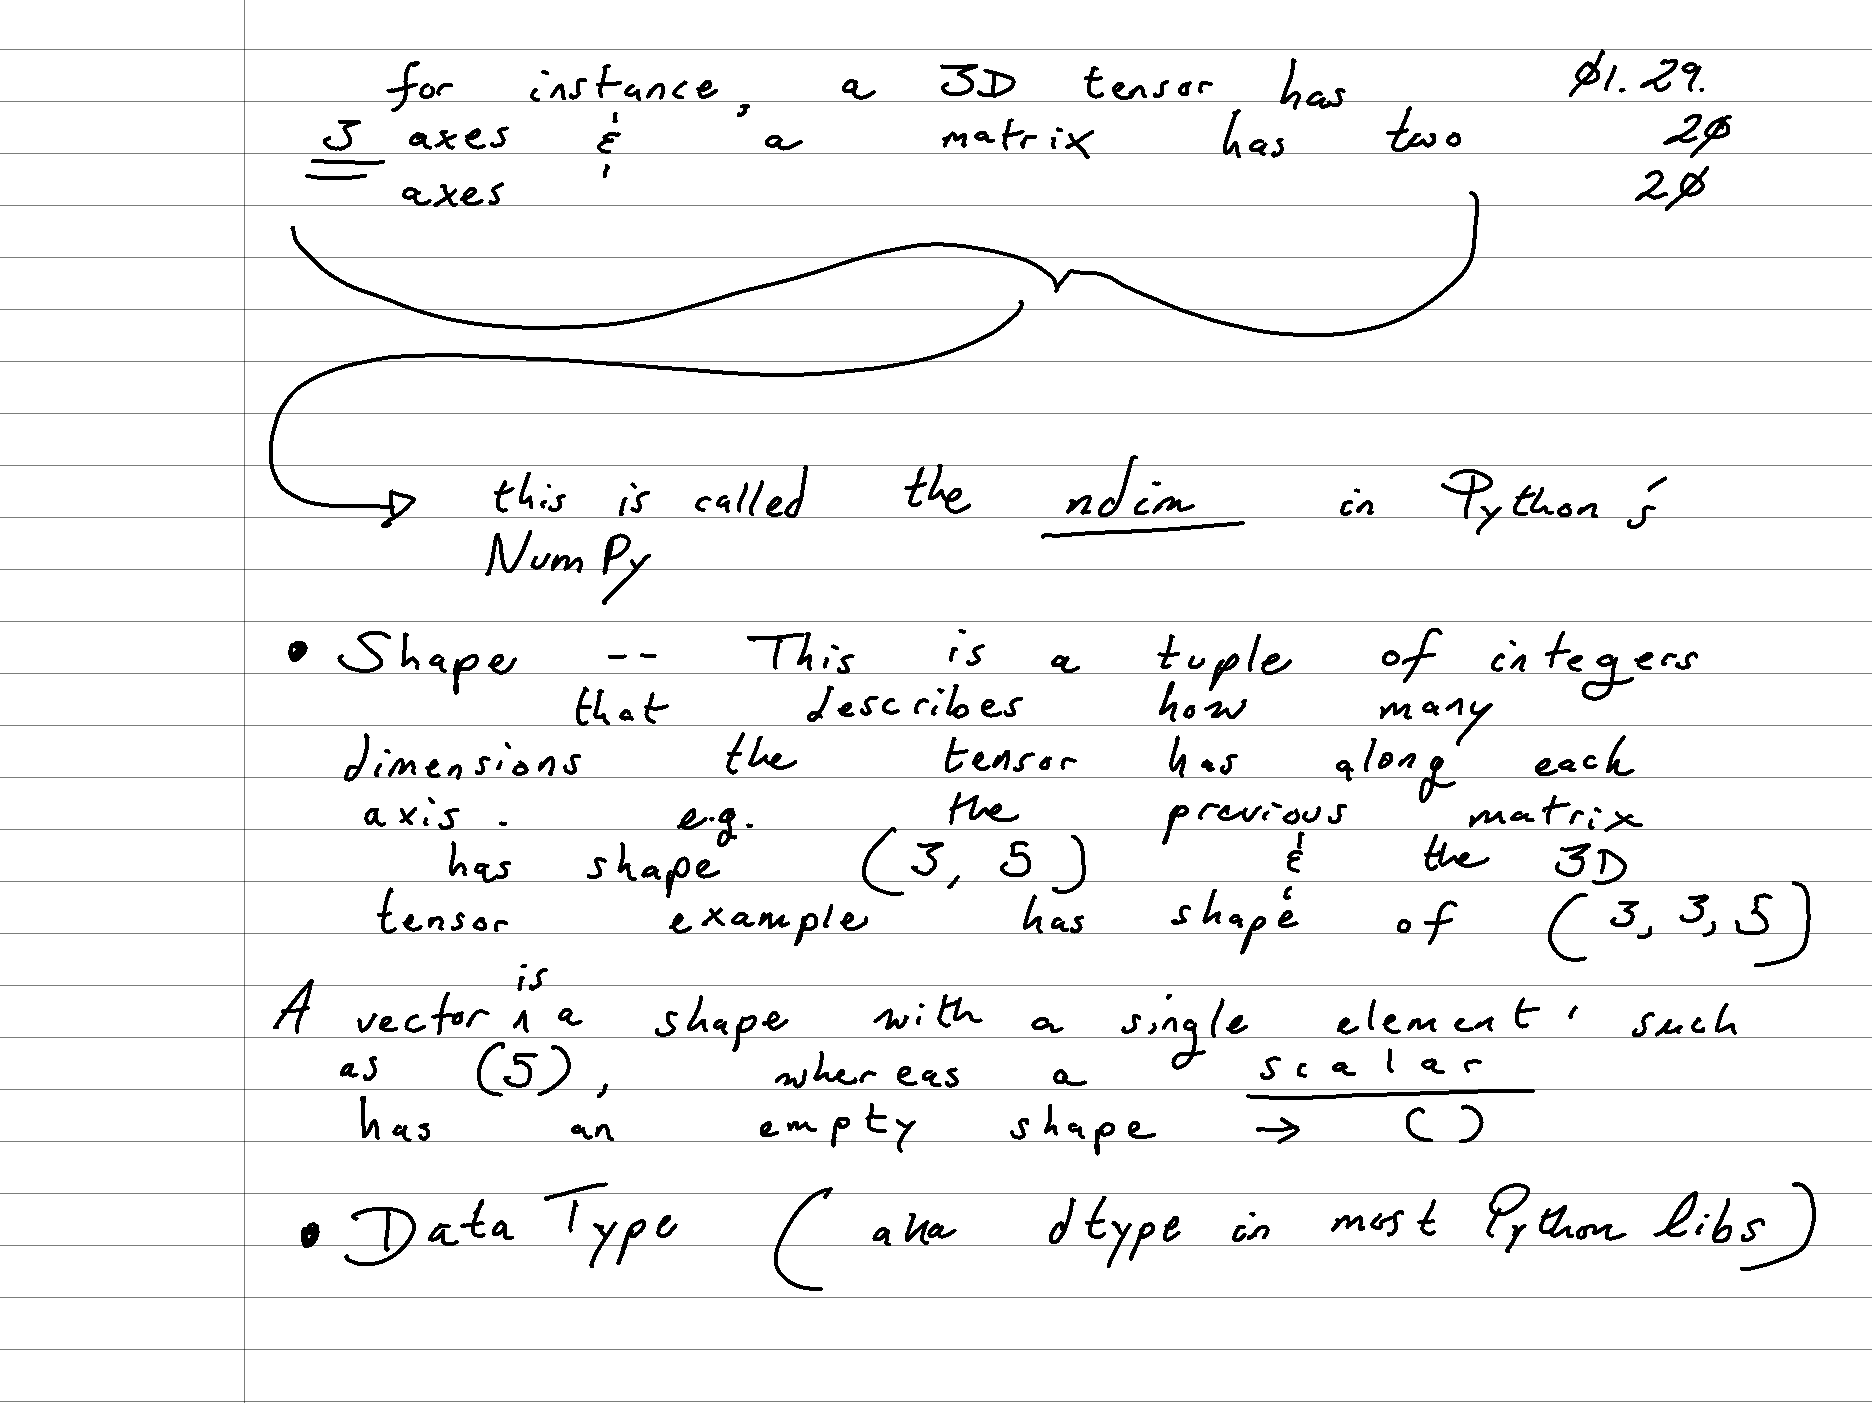 for instance, a 3D tensor has
Ø1.29.
3 axes & a matrix has two
2Ø
axes
2Ø
this is called the ndim in Python's
NumPy
• Shape -- This is a tuple of integers
that describes how many
dimensions the tensor has along each
axis. e.g. the previous matrix
has shape (3, 5) & the 3D
tensor example has shape of (3, 3, 5)
is
A vector ^ a shape with a single element, such
as (5), whereas a scalar
has an empty shape → ()
• Data Type (aka dtype in most Python libs)